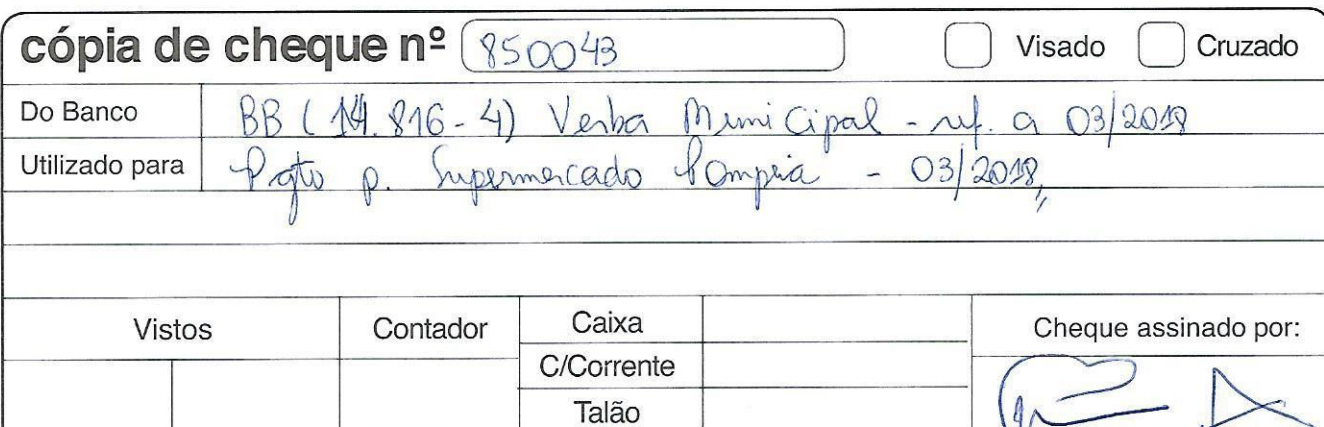 cópia de cheque nº 850043 Visado Cruzado
Do Banco BB (14.816-4) Verba Municipal - ref. a 03/2018
Utilizado para Pgto p. Supermercado Pompéia - 03/2018,,
Vistos Contador Caixa Cheque assinado por:
C/Corrente
Talão